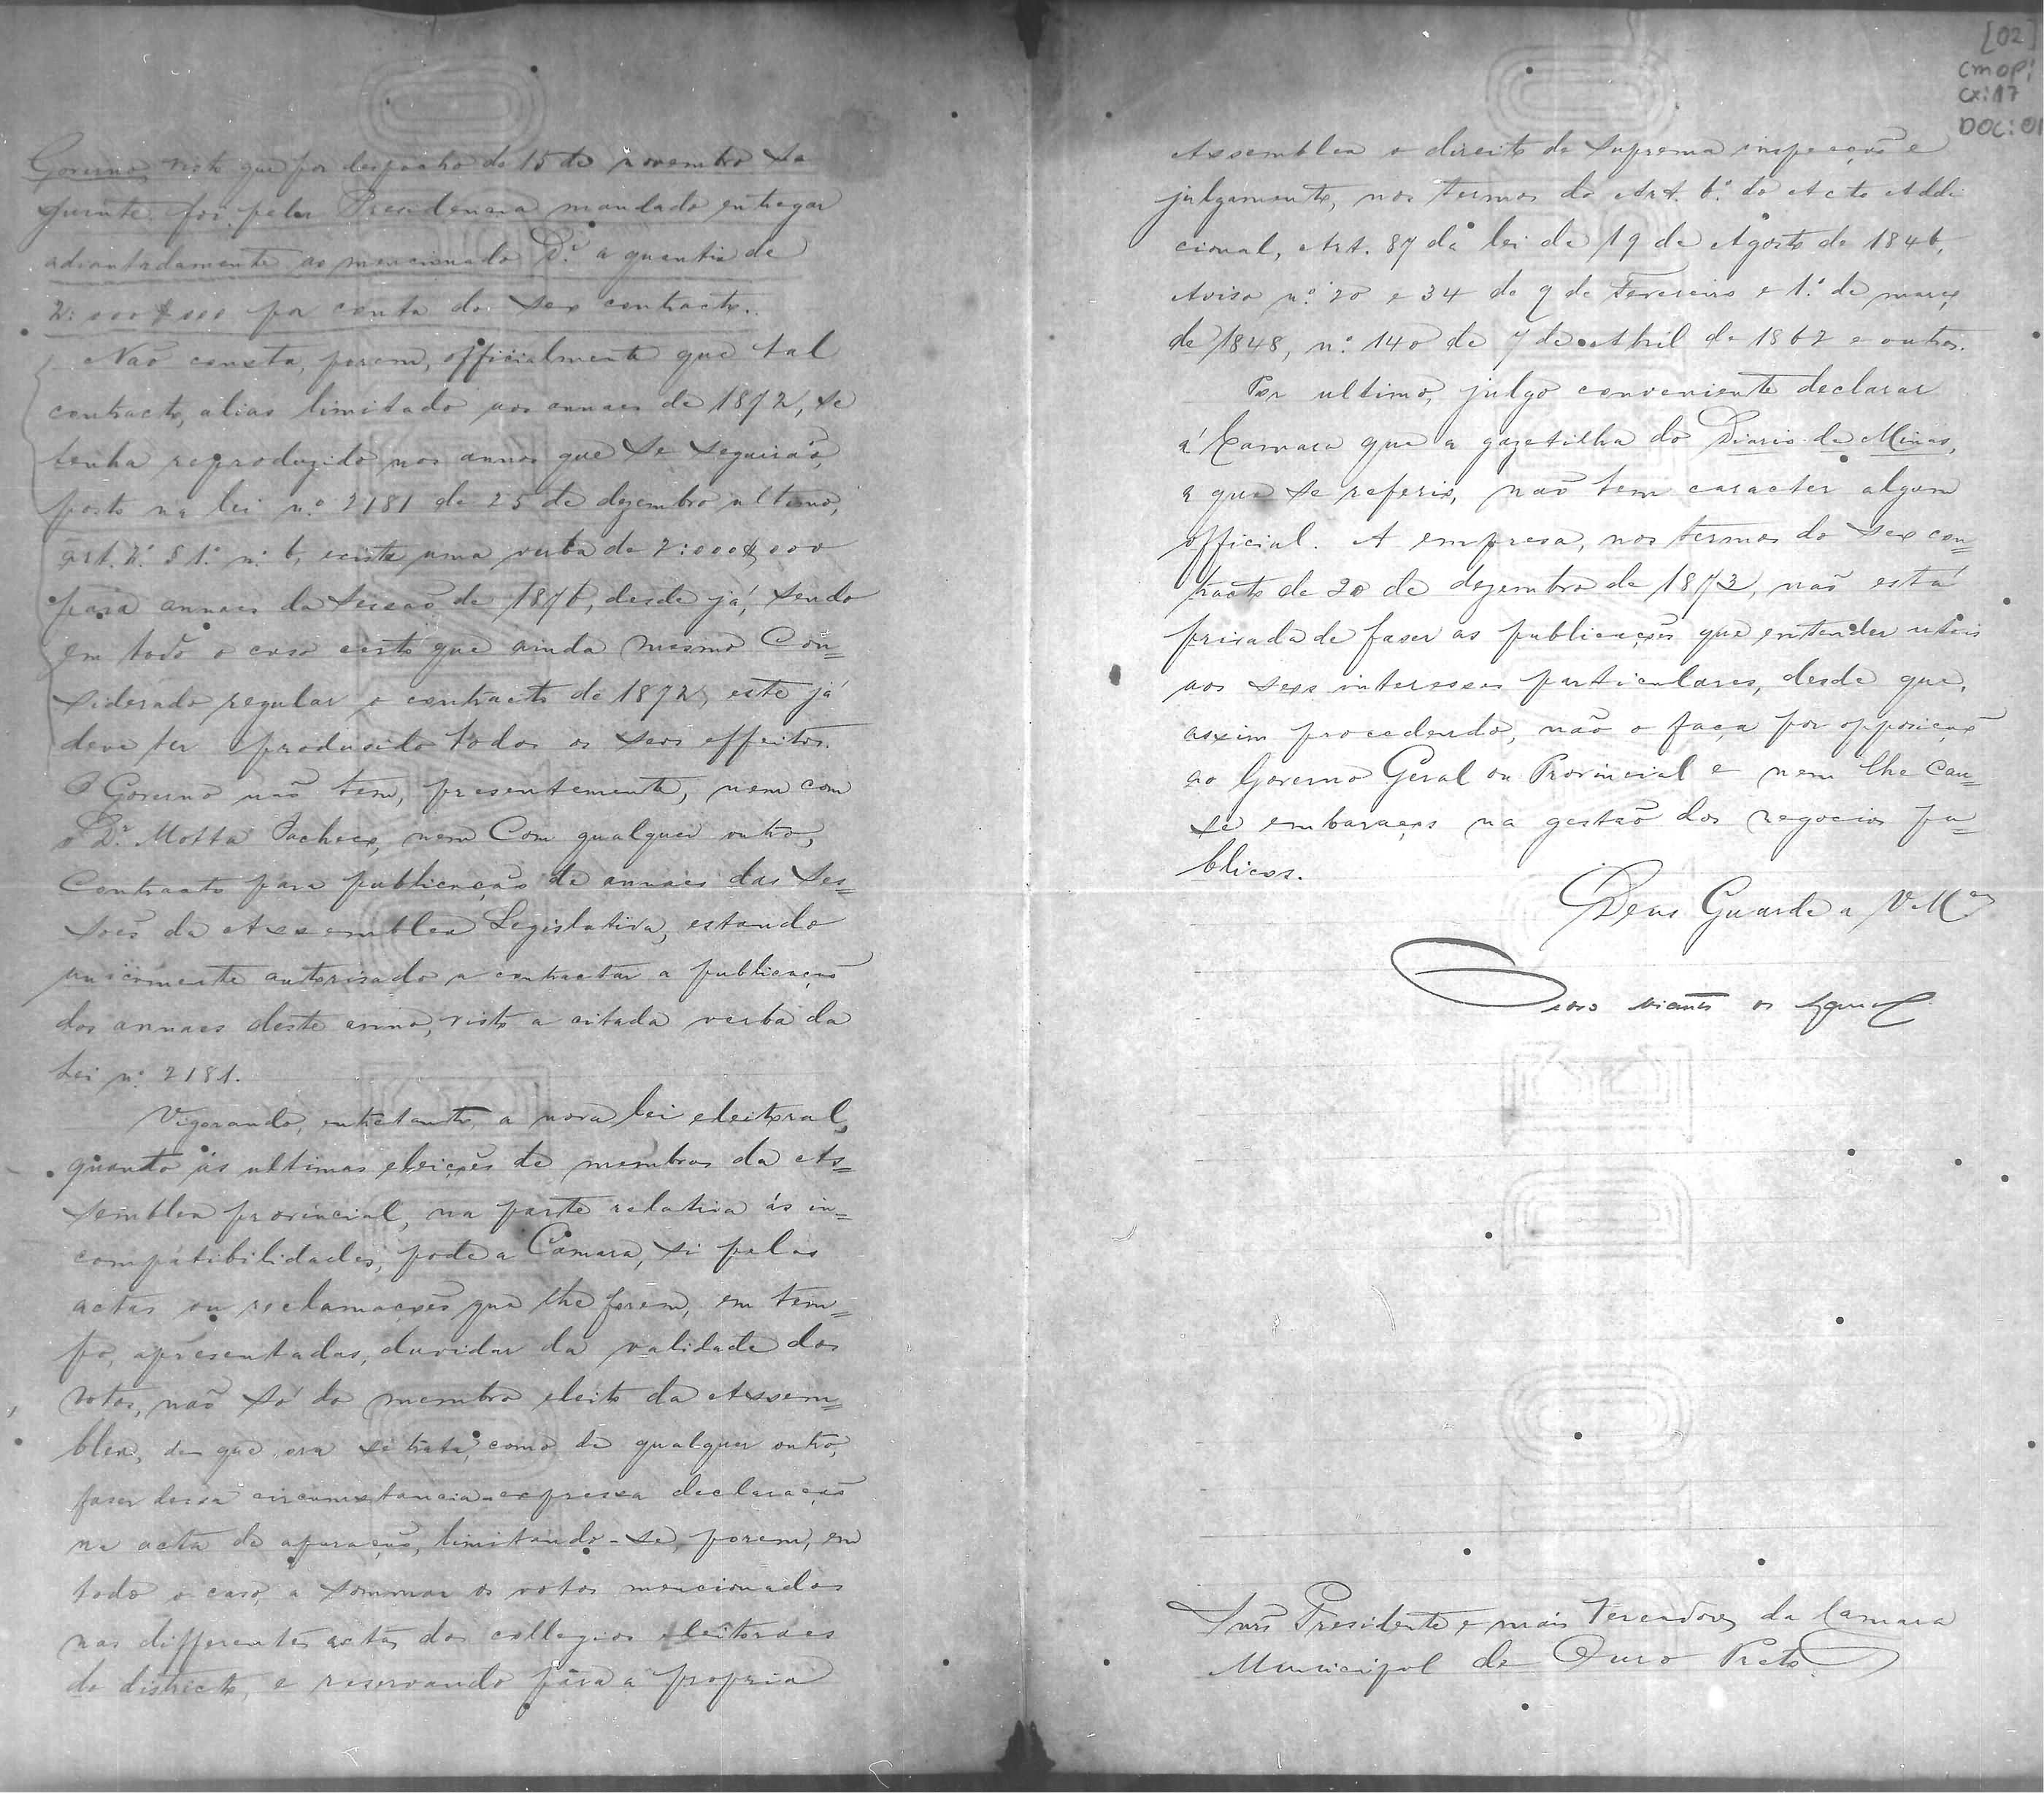 Governo, visto que por despacho de 15 de novembro se
guinte foi pela Presidencia mandado entregar
adiantadamente ao mencionado Dr. a quantia de
2:000$000 por conta do seo contracto.
Não consta, porem, officialmente que tal
contracto, alias limitado aos annaes de 1872, se
tenha reproduzido nos annos que se seguirão,
posto na lei n.º 2181 de 25 de dezembro ultimo,
art. 2.º § 1.º n.º 6, exista uma verba de 2:000$000
para annaes da sessão de 1876, desde já, sendo
em todo o caso certo que ainda mesmo Con=
siderado regular o contracto de 1872, este já
deve ter produzido todos os seos effeitos.
O Governo não tem, presentemente, nem com
o Dr. Motta Pacheco, nem Com qualquer outro,
Contracto para publicação de annaes das Ses=
sões da Assemblea Legislativa, estando
unicamente autorisado a contractar a publicação
dos annaes deste anno, visto a citada verba da
Lei n.º 2181.
Vigorando, entretanto, a nova lei eleitoral,
quanto ás ultimas eleições de membros da As=
semblea provincial, na parte relativa ás in=
compatibilidades, pode a Camara, si pelas
actas ou reclamações que lhe forem, em tem=
po, apresentadas, duvidar da validade dos
votos, não só do membro eleito da Assem=
blea, de que ora se trata, como de qualquer outro,
faser dessa circumstancia expressa declaração
na acta da apuração, limitando-se, porem, em
todo o caso, a sommar os votos mencionados
nas differentes actas dos collegios eleitoraes
do districto, e reservando para a propria
[02]
cmopi
cx: 17
DOC: 01
Assemblea o direito de suprema inspecção e
julgamento, nos termos do Art. 6.º do Acto Addi
cional, Art. 87 da lei de 19 de Agosto de 1846,
Aviso n.º 20 e 34 de 9 de Fevereiro e 1.º de março
de 1848, n.º 140 de 7 de Abril de 1862 e outros.
Por ultimo, julgo conveniente declarar
á Camara que a gazetilha do Diario de Minas,
a que se referio, não tem caracter algum
official. A empresa, nos termos do seo con=
tracto de 20 de dezembro de 1873, não está
privada de faser as publicações que entender uteis
aos seos interesses particulares, desde que,
assim procedendo, não o faça por opposição
ao Governo Geral ou Provincial e nem lhe Cau=
se embaraços na gestão dos negocios pu=
blicos.
Deus Guarde a VMces
Snrs Presidente e mais Vereadores da Camara
Municipal de Ouro Preto